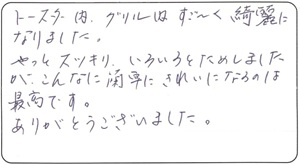 トースター内、グリル内すご〜く綺麗に
なりました。
やっとスッキリ、いろいろとためしました
が、こんなに簡単にきれいになるのは
最高です。
ありがとうございました。